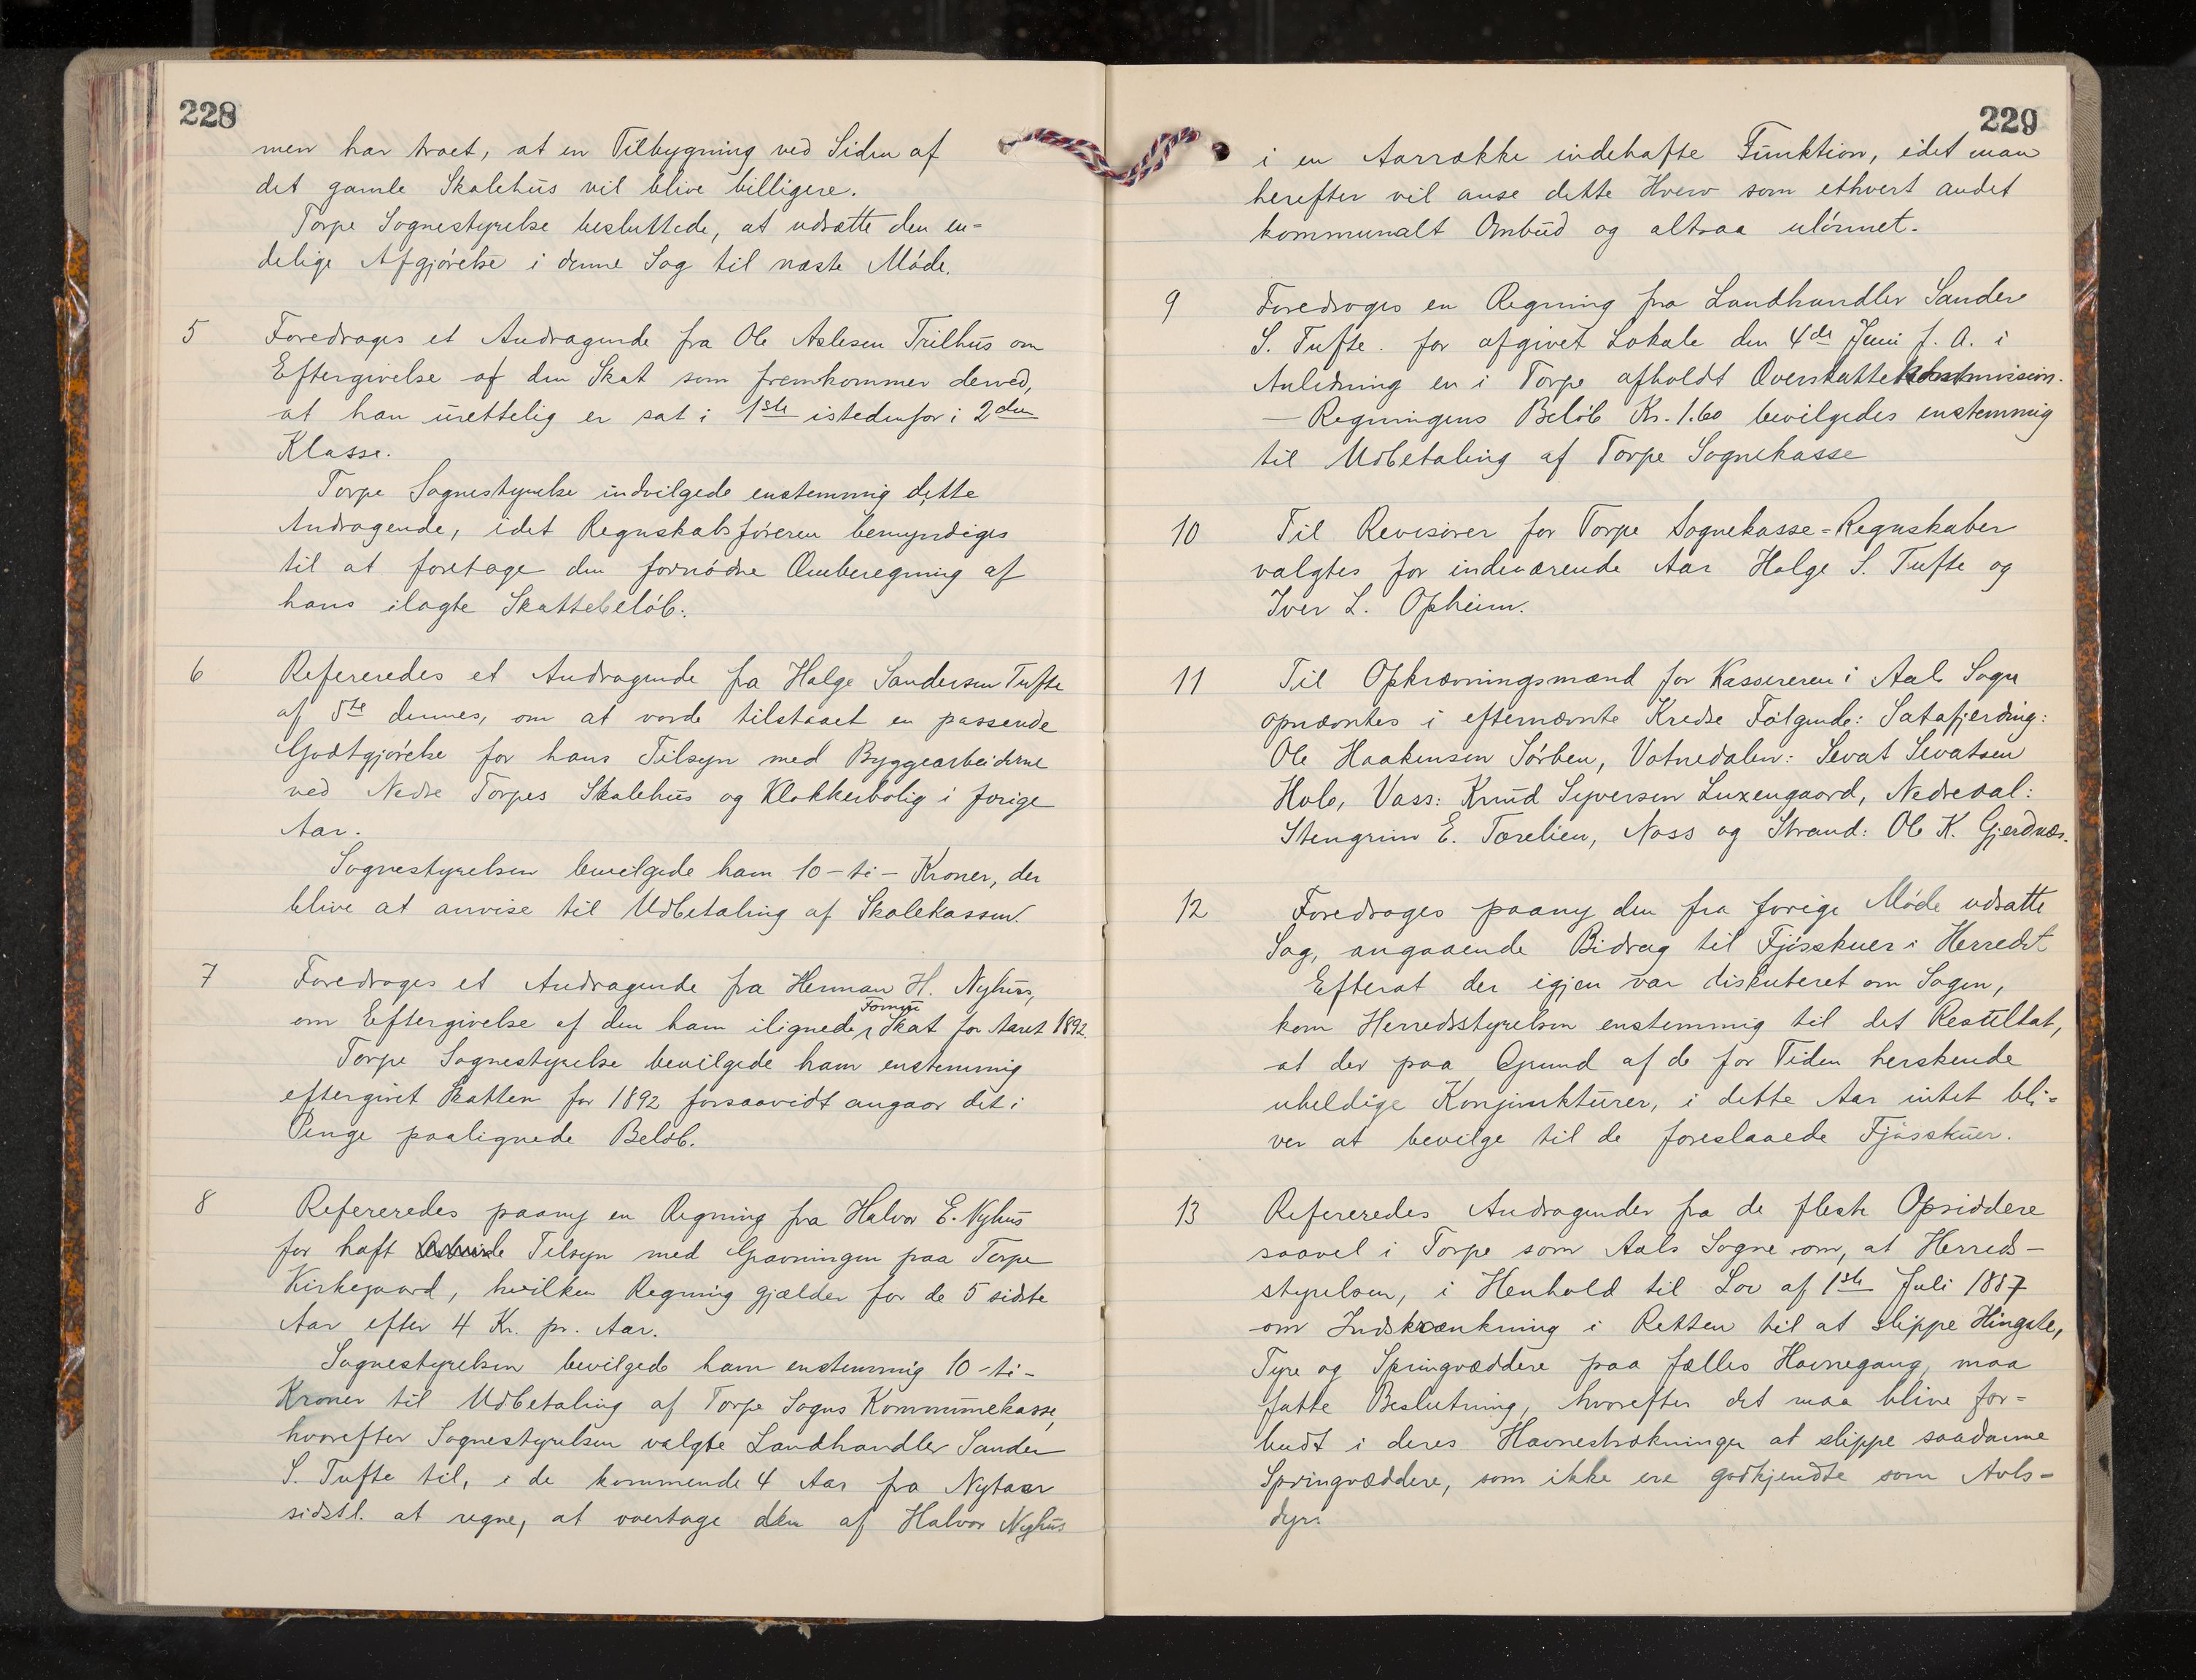 228
men har troet, at en Tilbygning ved Siden af
det gamle Skolehus vil blive billigere.
Torpe Sognestyrelse besluttede, at udsætte den en-
delige Afgjørelse i denne Sag til næste Møde.
5 Foredroges et Andragende fra Ole Aslesen Trilhus om
Eftergivelse af den Skat som fremkommer derved,
at han urettelig er sat i 1ste istedenfor i 2den
Klasse.
Torpe Sognestyrelse indvilgede enstemmig dette
Andragende, idet Regnskabsføreren bemyndiges
til at foretage den fornødne Omberegning af
hans ilagte Skattebeløb.
6 Refereredes et Andragende fra Halge Sandersen Tufte
af 5te dennes, om at vorde tilstaaet en passende
Godtgjørelse for hans Tilsyn med Byggearbeiderne
ved Nedre Torpes Skolehus og Klokkerbolig i forige
Aar.
Sognestyrelsen bevilgede ham 10 - ti - Kroner, der
blive at anvise til Udbetaling af Skolekassen.
7 Foredroges et Andragende fra Herman H. Nyhus,
om Eftergivelse af den ham ilignede Formue Skat for Aaret 1892.
Torpe Sognestyrelse bevilgede ham enstemmig
eftergivet Skatten for 1892 forsaavidt angaar det i
Penge paalignede Beløb.
8 Refereredes paany en Regning fra Halvor E. Nyhus
for haft Tilsyn med Gravningen paa Torpe
Kirkegaard, hvilken Regning gjælder for de 5 sidste
Aar efter 4 Kr. pr. Aar.
Sognestyrelsen bevilgede ham enstemmig 10 - ti -
Kroner til Udbetaling af Torpe Sogns Kommunekasse,
hvorefter Sognestyrelsen valgte Landhandler Sander
S. Tufte til, i de kommende 4 Aar fra Nytaar
sidstl. at regne, at overtage den af Halvor Nyhus
229
i en Aarrække indehafte Funktion, idet man
herefter vil anse dette Hverv som ethvert andet
kommunalt Ombud og altsaa ulønnet.
9 Foredroges en Regning fra Landhandler Sander
S. Tufte for afgivet Lokale den 4de Juni f. A. i
Anledning en i Torpe afholdt Overskattekommission.
- Regningens Beløb Kr. 1.60 bevilgedes enstemmig
til Udbetaling af Torpe Sognekasse
10 Til Revisorer for Torpe Sognekasse-Regnskaber
valgtes for indeværende Aar Halge S. Tufte og
Iver L. Opheim.
11 Til Opkrævningsmænd for Kassereren i Aals Sogn
opnævntes i efternævnte Kredse Følgende: Satafjerding:
Ole Haakensen Sørben, Votnedalen: Sevat Sevatsen
Hole, Vass: Knud Syversen Luxengaard, Nedreaal:
Stengrim E. Torelien, Noss og Strand: Ole K. Gjerdnæs.
12 Foredroges paany den fra forige Møde udsatte
Sag, angaaende Bidrag til Fjøsskuer i Herredet
Efterat der igjen var diskuteret om Sagen,
kom Herredsstyrelsen enstemmig til det Resultat,
at der paa Grund af de for Tiden herskende
uheldige Konjunkturer, i dette Aar intet bli-
ver at bevilge til de foreslaaede Fjøsskuer.
13 Refereredes Andragender fra de fleste Opsiddere
saavel i Torpe som Aals Sogne om, at Herreds-
styrelsen, i Henhold til Lov af 1ste Juli 1887
om Indskrænkning i Retten til at slippe Hingste,
Tyre og Springvæddere paa fælles Havnegang, maa
fatte Beslutning, hvorefter det maa blive for-
budt i deres Havnestrækninger at slippe saadanne
Springvæddere, som ikke ere godkjendte som Avls-
dyr.